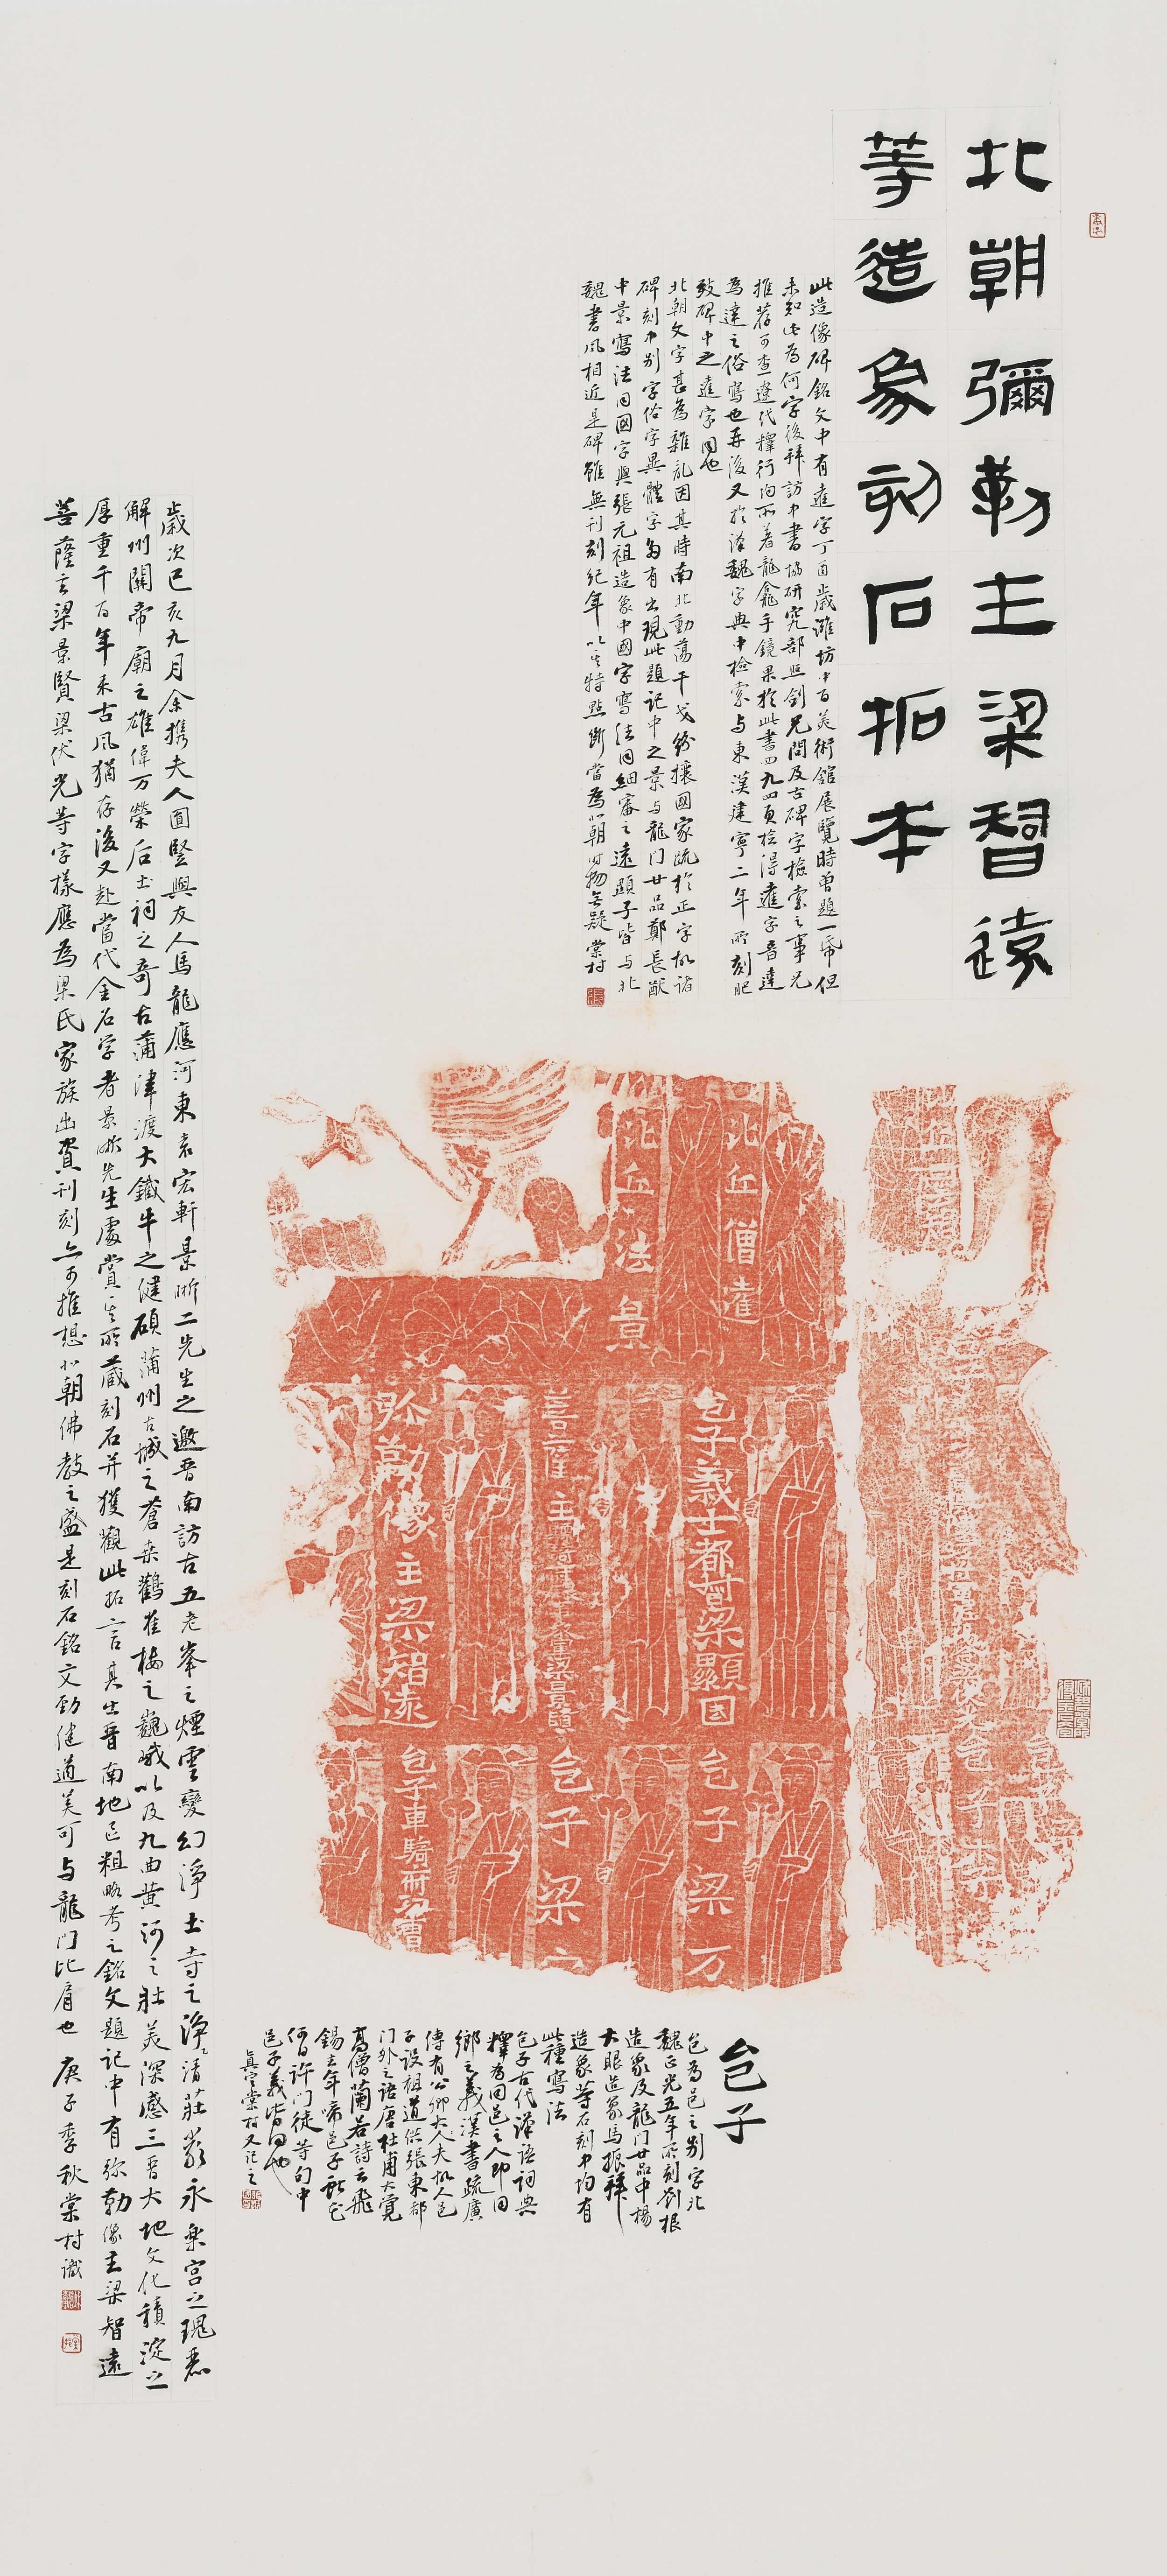 北朝彌勒主梁智遠
等造象刻石拓本
此造像碑銘文中有䢔字丁酉歲濰坊中百美術館展覽時曾題一紙但
未知此為何字後拜訪中書協研究部照劍兄問及古碑字檢索之事兄
推薦可查遼代釋行均所著龍龕手鏡果於此書四九四頁檢得䢔字音達
為達之俗寫也再後又於漢魏字典中檢索与東漢建寧二年所刻肥
致碑中之達字同也
北朝文字甚為雜乱因其時南北動蕩干戈紛攘國家疏於正字故諸
碑刻中别字俗字異體字多有出現此題記中之景与龍门廿品鄭長猷
中景寫法同國字與張元祖造象中國字寫法同細審之遠顯子皆与北
魏書風相近是碑雖無刊刻紀年以其特點斷當為北朝舊物無疑 棠村
比丘僧達
比丘法景
邑子義士都督梁顯国
菩薩主
梁景賢
弥勒像主梁智遠
邑子梁万
邑子梁
邑子車騎
梁伏光
邑子李
邑子
邑為邑之别字北
魏正光五年所刻劉根
造象及龍门廿品中楊
大眼造象馬振拜
造象等石刻中均有
此種寫法
邑子古代漢語詞典
釋為同邑之人即同
鄉之義漢書疏廣
傳有公卿大夫故人邑
子設祖道供張東都
门外之語唐杜甫大覺
高僧蘭若詩云飛
錫去年啼邑子獻花
何日許门徒等句中
邑子義皆同也
真定棠村又記之
歲次己亥九月余携夫人圓竪與友人馬龍應河東袁宏軒景晰二先生之邀晋南訪古五老峯之煙雲變幻淨土寺之淨清莊嚴永樂宫之瑰麗
解州關帝廟之雄偉万榮后土祠之奇古蒲津渡大鐵牛之健碩蒲州古城之蒼桑鸛雀樓之巍峨以及九曲黄河之壯美深感三晋大地文化積淀之
厚重千百年来古風猶存後又赴當代金石学者景晰先生處賞其所藏刻石并獲觀此拓言其出晋南地區粗略考之銘文題記中有弥勒像主梁智遠
菩薩主梁景賢梁伏光等字樣應為梁氏家族出資刊刻亦可推想北朝佛教之盛是刻石銘文勁健遒美可与龍门比肩也 庚子季秋棠村識